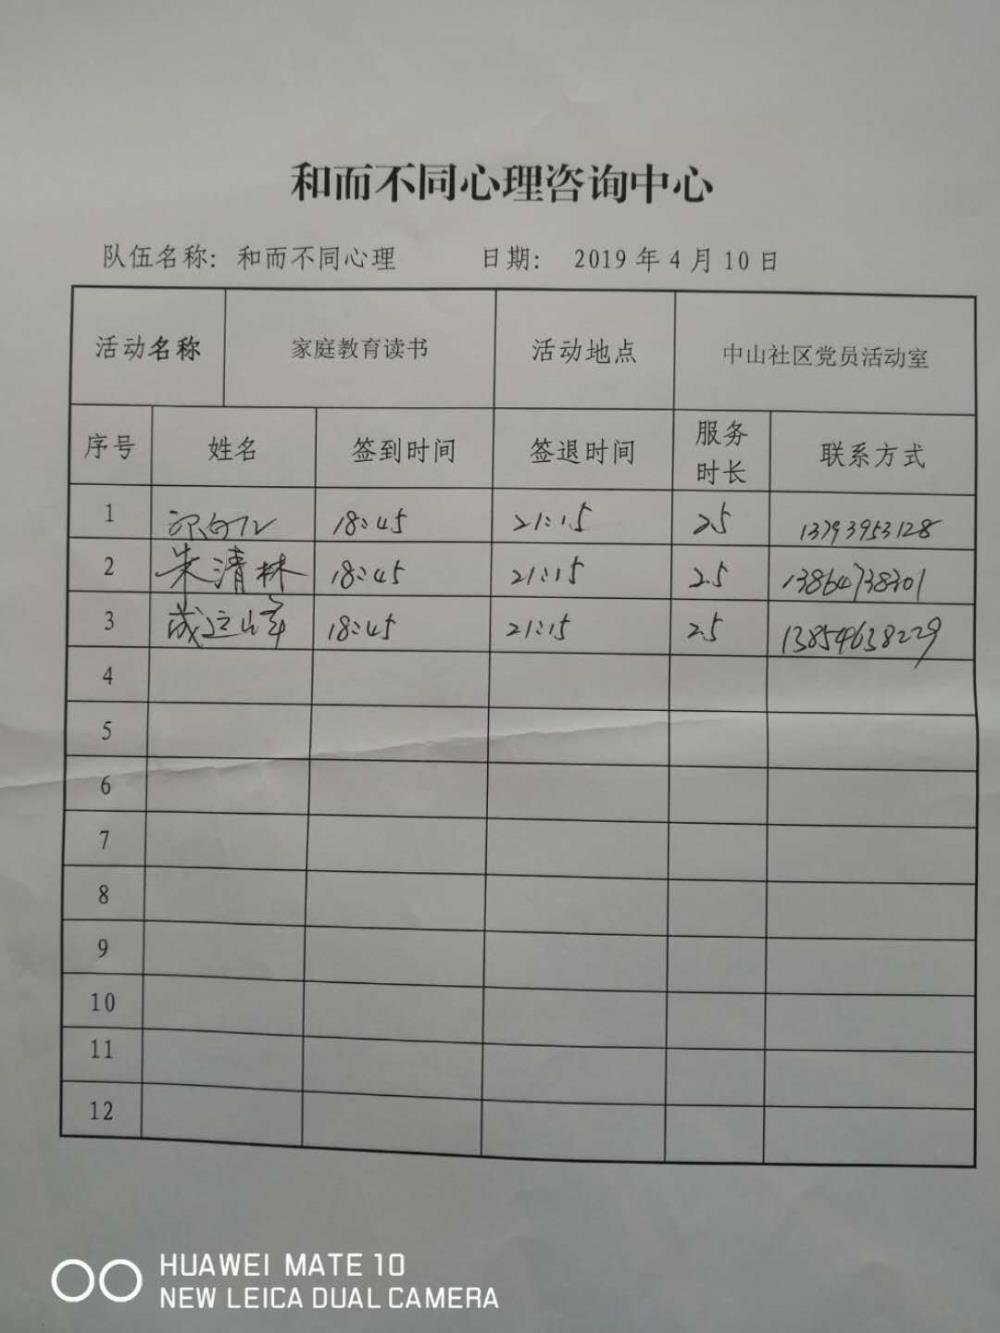 和而不同心理咨询中心
队伍名称: 和而不同心理 日期: 2019 年 4 月 10 日
活动名称 家庭教育读书 活动地点 中山社区党员活动室
序号 姓名 签到时间 签退时间 服务时长 联系方式
1 18:45 21:15 2.5 13793953128
2 朱清林 18:45 21:15 2.5 13864738301
3 18:45 21:15 2.5 13854638229
4
5
6
7
8
9
10
11
12
HUAWEI MATE 10
NEW LEICA DUAL CAMERA